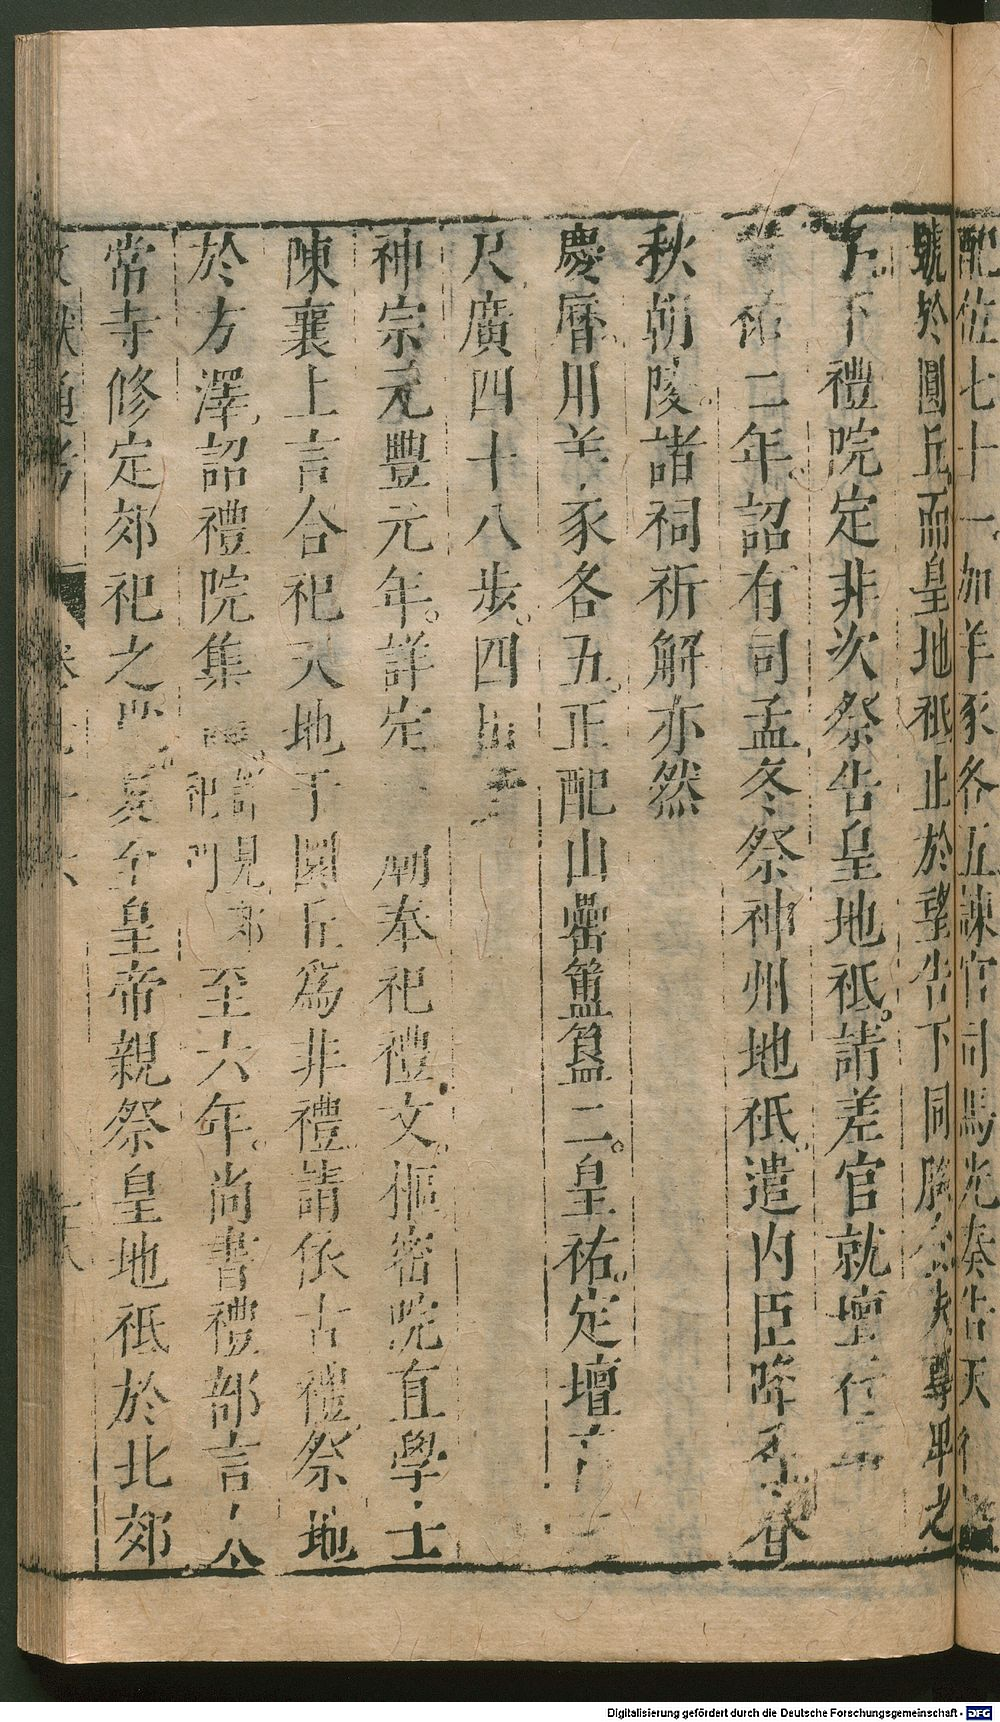 配位七十一加羊豕各五諫官司馬光奏告天
號於圓丘而皇地祇止於望告下同
下禮院定非次祭告皇地祇請差官就壇行
祐二年詔有司孟冬祭神州地祇遣内臣降香春
秋朝陵諸祠祈解亦然
慶曆用羊豕各五正配山罍簠簋二皇祐定壇
尺廣四十八步四
神宗元豐元年詳定廟奉祀禮文樞密院直學士
陳襄上言合祀天地于圜丘爲非禮請依古禮祭地
於方澤詔禮院集
見郊
祀門
至六年尚書禮部言
常寺修定郊祀之夏至皇帝親祭皇地祇於北郊
文獻通考
Digitalisierung gefördert durch die Deutsche Forschungsgemeinschaft - DFG